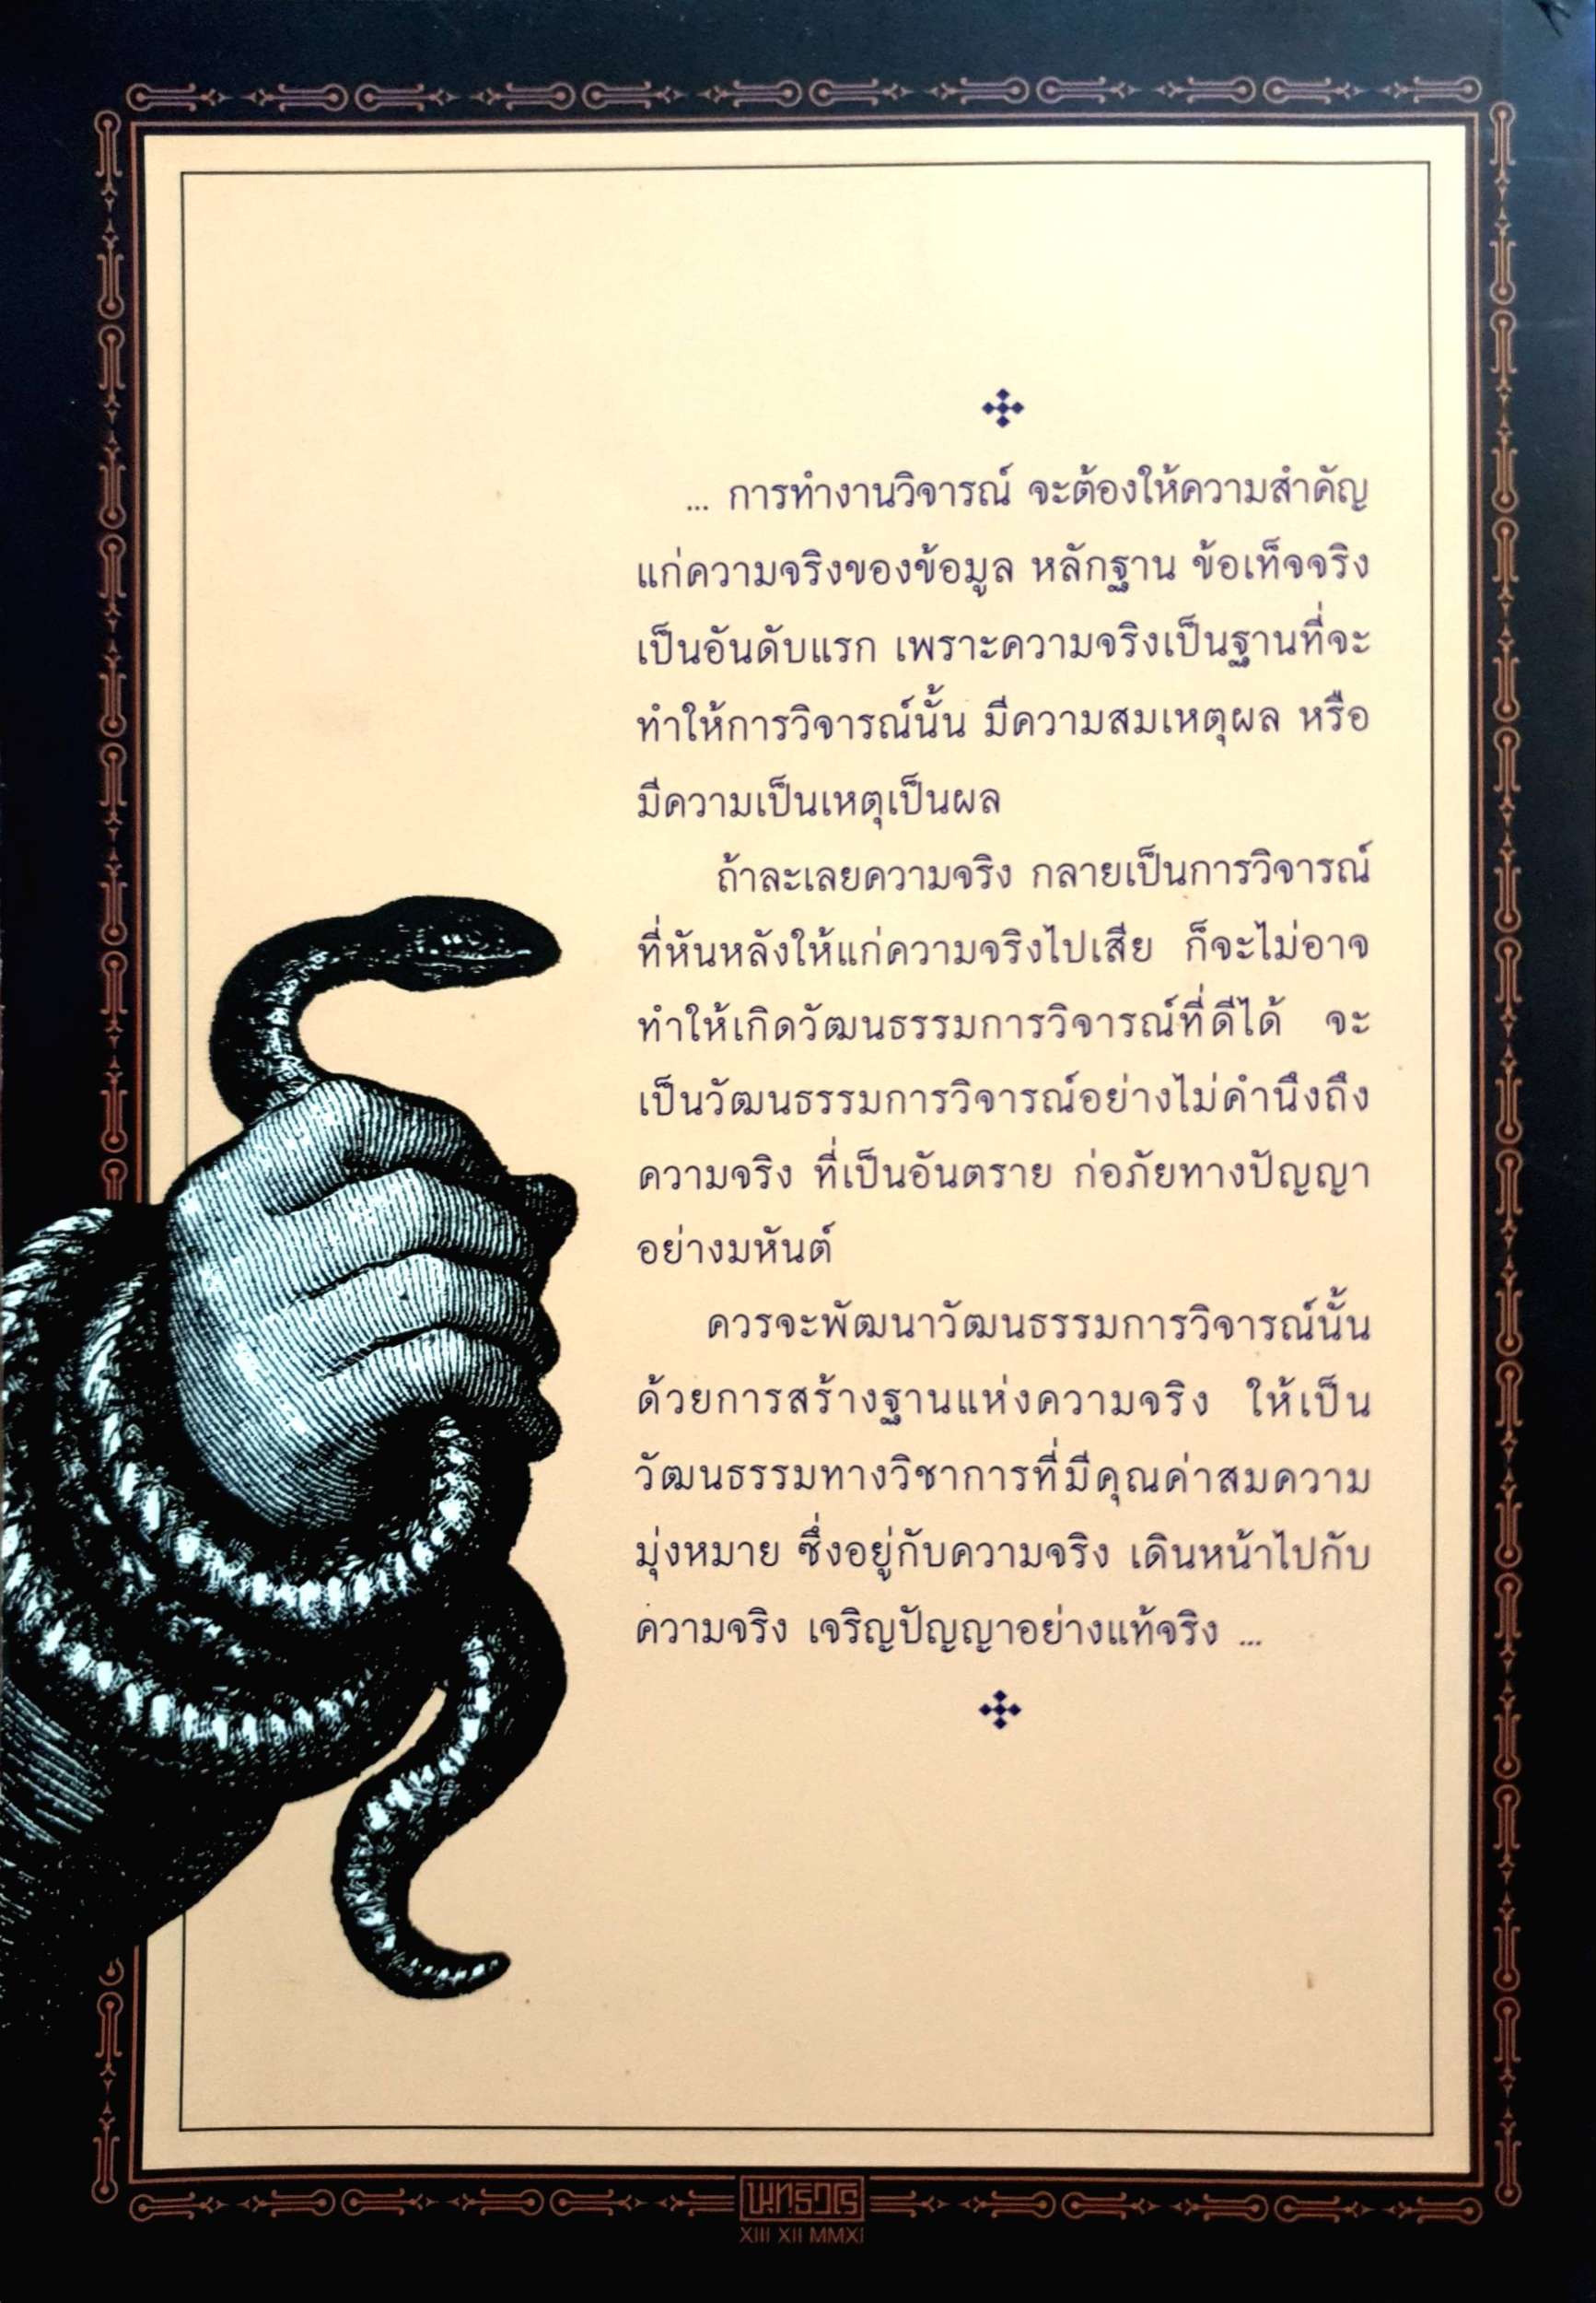 ... การทำงานวิจารณ์ จะต้องให้ความสำคัญ
แก่ความจริงของข้อมูล หลักฐาน ข้อเท็จจริง
เป็นอันดับแรก เพราะความจริงเป็นฐานที่จะ
ทำให้การวิจารณ์นั้น มีความสมเหตุผล หรือ
มีความเป็นเหตุเป็นผล
ถ้าละเลยความจริง กลายเป็นการวิจารณ์
ที่หันหลังให้แก่ความจริงไปเสีย ก็จะไม่อาจ
ทำให้เกิดวัฒนธรรมการวิจารณ์ที่ดีได้ จะ
เป็นวัฒนธรรมการวิจารณ์อย่างไม่คำนึงถึง
ความจริง ที่เป็นอันตราย ก่อภัยทางปัญญา
อย่างมหันต์
ควรจะพัฒนาวัฒนธรรมการวิจารณ์นั้น
ด้วยการสร้างฐานแห่งความจริง ให้เป็น
วัฒนธรรมทางวิชาการที่มีคุณค่าสมความ
มุ่งหมาย ซึ่งอยู่กับความจริง เดินหน้าไปกับ
ความจริง เจริญปัญญาอย่างแท้จริง ...
XIII XII MMXI